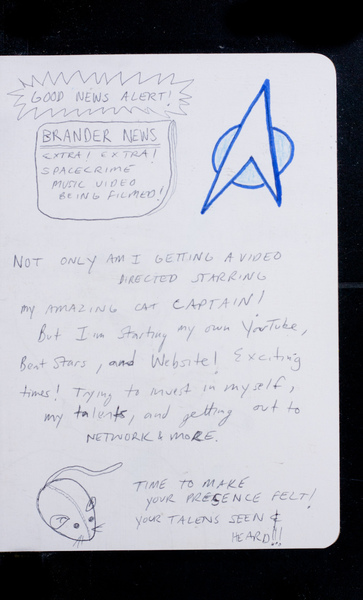 GOOD NEWS ALERT!
BRANDER NEWS
EXTRA! EXTRA!
SPACECRIME
MUSIC VIDEO
BEING FILMED!
NOT ONLY AM I GETTING A VIDEO
DIRECTED STARRING
MY AMAZING CAT CAPTAIN!
But I'm starting my own YouTube,
Beat Stars, and Website! Exciting
times! Trying to invest in myself,
my talents, and getting out to
NETWORK & MORE.
TIME TO MAKE
YOUR PRESENCE FELT!
YOUR TALENS SEEN &
HEARD!!!